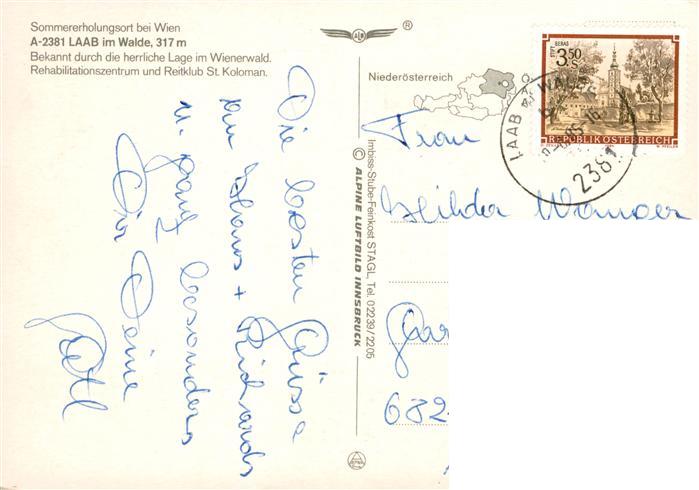 Sommererholungsort bei Wien
A-2381 LAAB im Walde, 317 m
Bekannt durch die herrliche Lage im Wienerwald.
Rehabilitationszentrum und Reitklub St. Koloman.
®
Niederösterreich
GERAS
3.50
S
REPUBLIK ÖSTERREICH
LAAB
WALDE
2381
Die besten Grüsse
+ Richards
u. ganz besonders
Dir Deine
Imbiss-Stube-Feinkost STAGL, Tel. 02239/2205
© ALPINE LUFTBILD INNSBRUCK
Frau
682